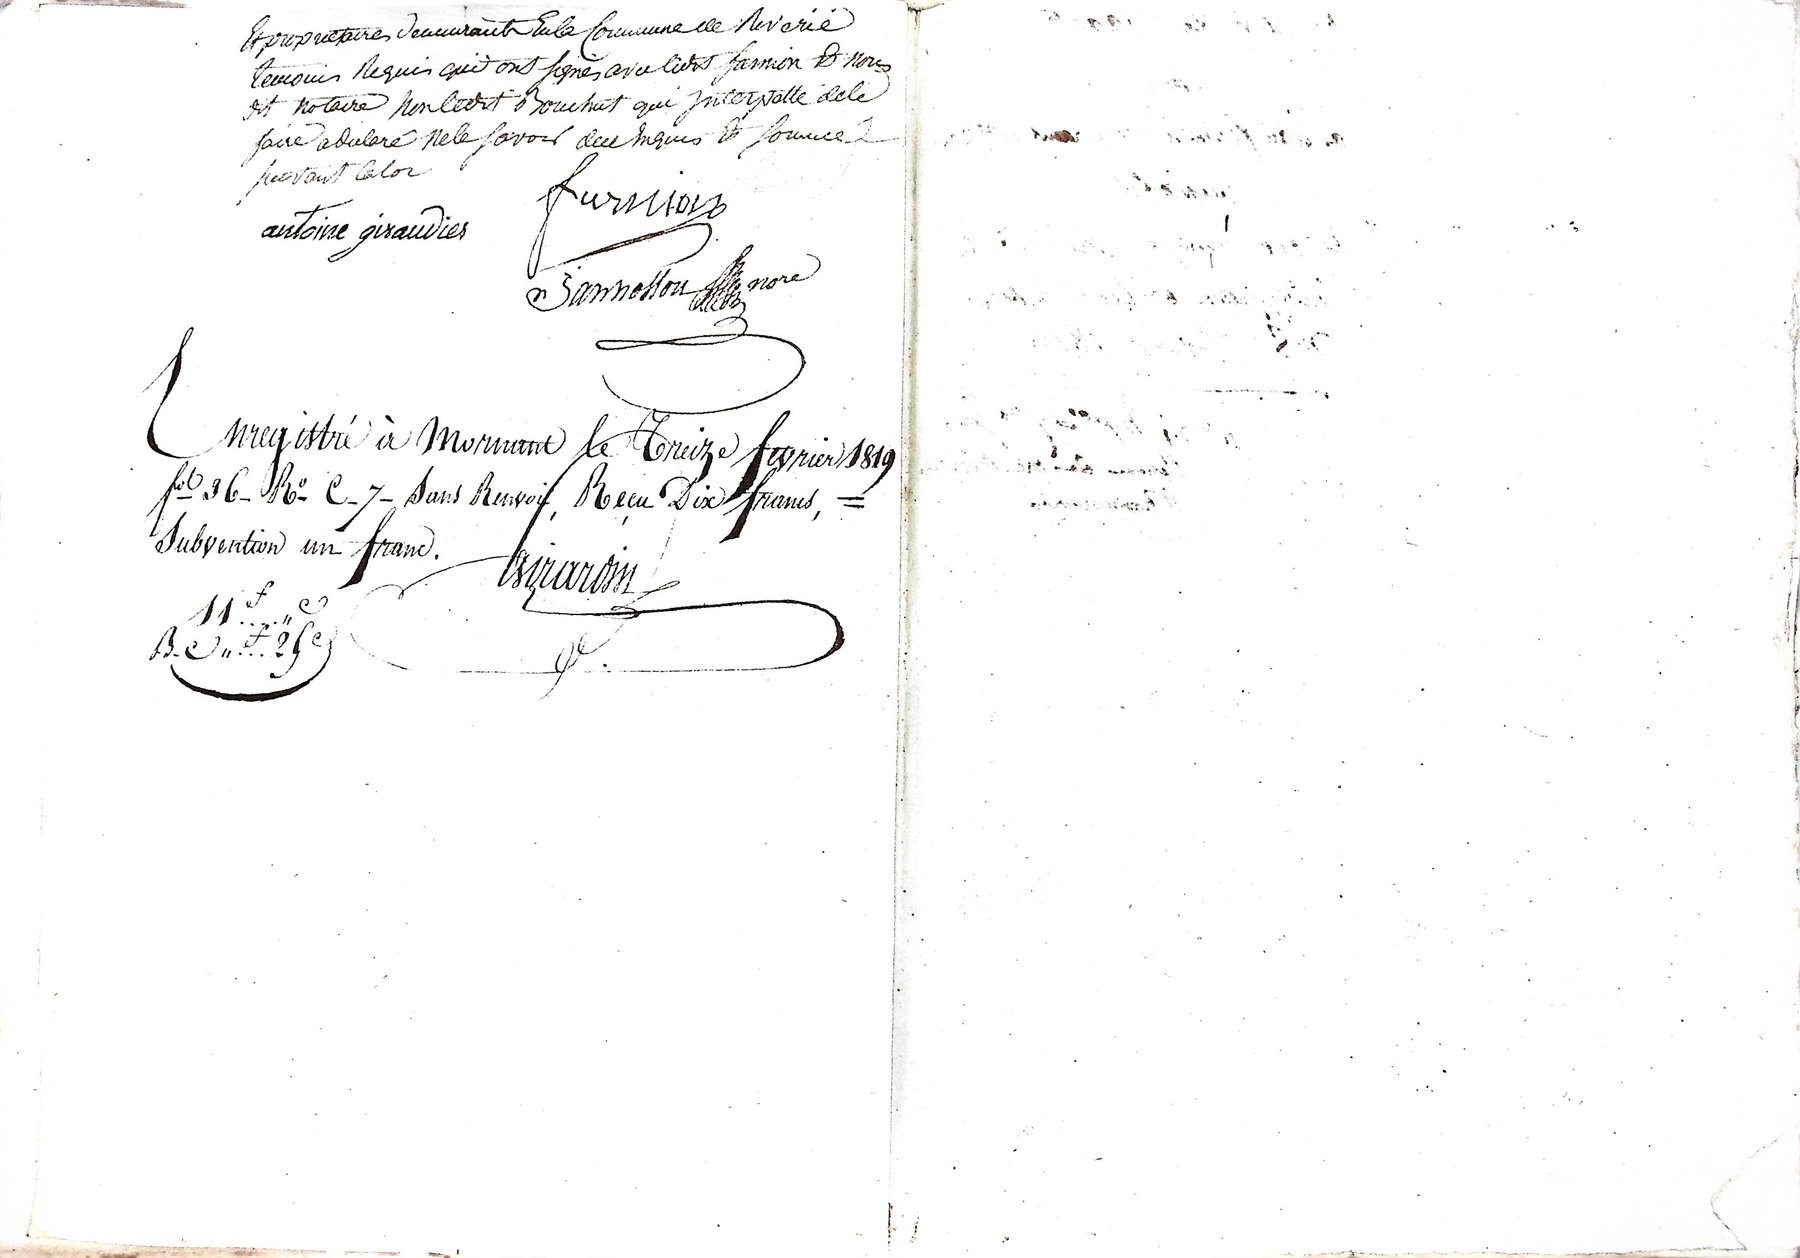 Et proprietaires demeurants En la Commune de Riverie
temoins Requis qui ont signés avec ledit furnion Et nous
dit notaire Non ledit Bouchut qui Interpellé de le
faire a declaré Ne le savoir de ce Enquis Et sommé
suivant la loi
furnion
antoine giraudier
nore
Enregistré à Mornant le Treize fevrier 1819
fol 36 - Ro. C - 7 - Sans Renvoi, Reçu Dix francs, =
Subvention un franc.
Girardin
11 f .... " c
B. C " .... f 25 c